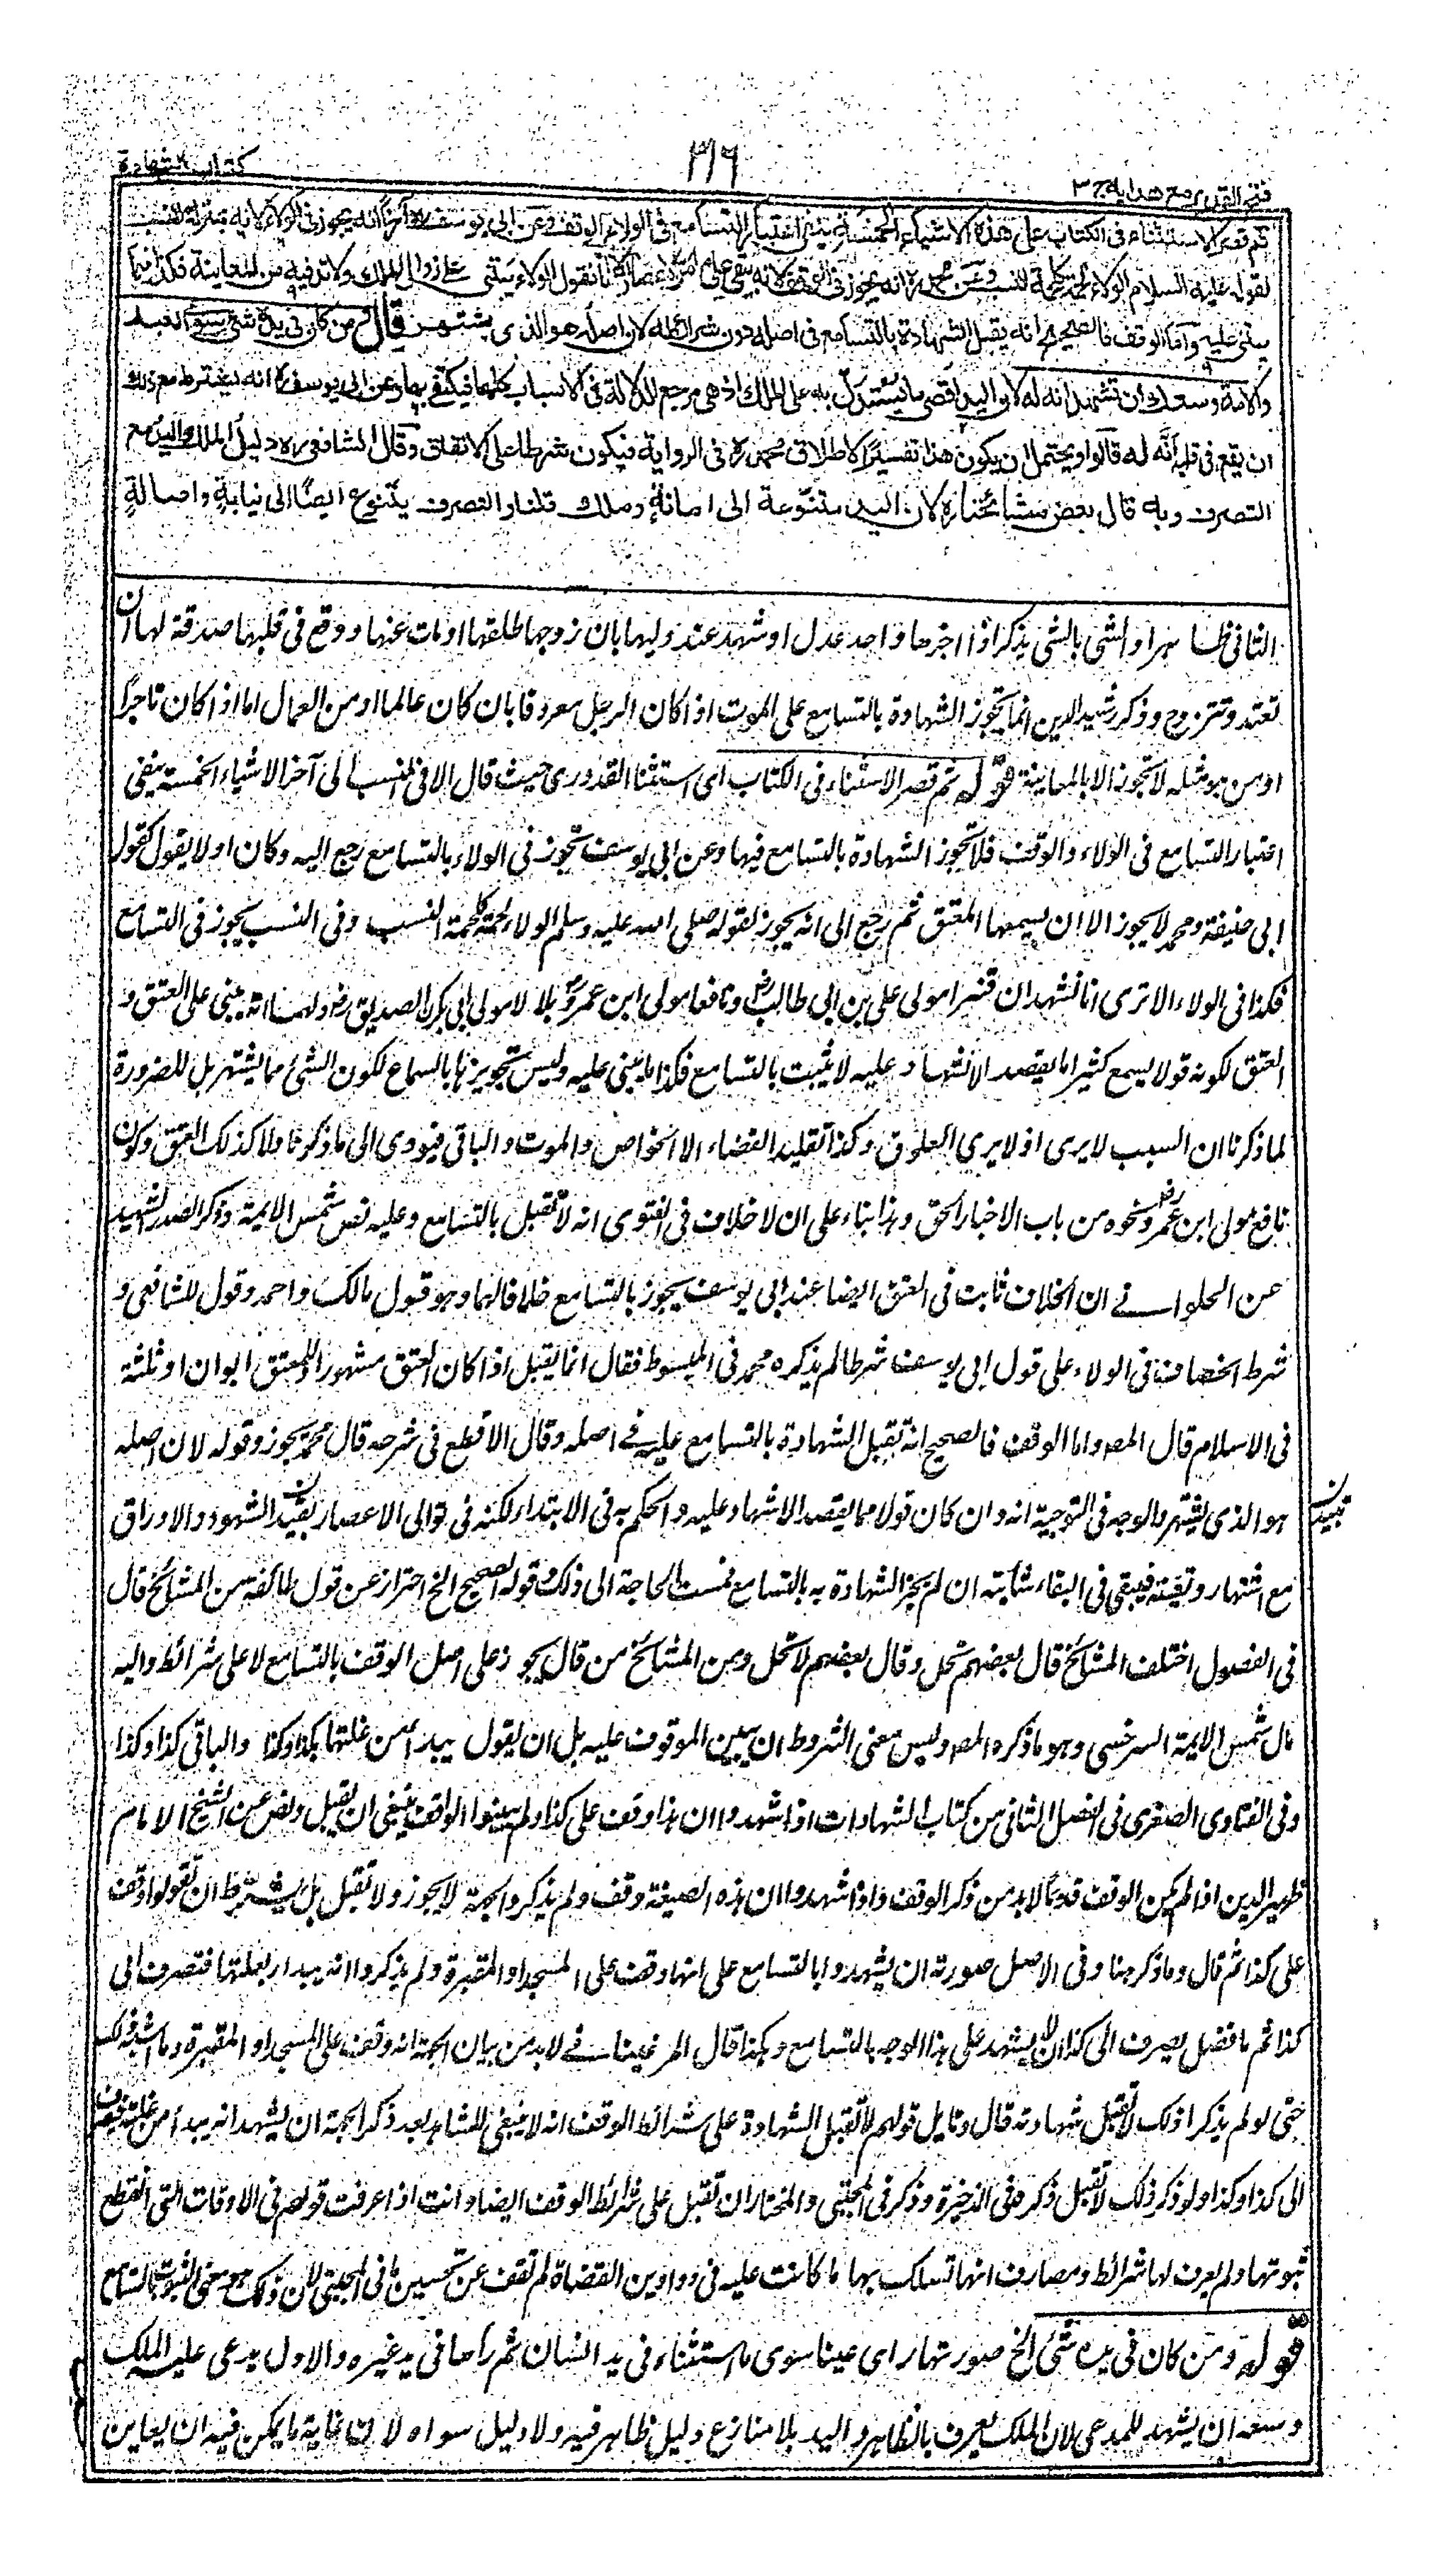 فتح القدير مع هدايه ج ٣
٣١٦
كتاب الشهادة
ثم قصر الاستثناء فى الكتاب على هذه الاشياء الخمسة ينفى اعتبار التسامع فى الولاء والوقف وعن ابى يوسف ره آخرا انه يجوز فى الولاء لانه بمنزلة النسب
لقوله عليه السلام الولاء لحمة كلحمة النسب وعن محمد ره انه يجوز فى الوقف لانه يبقى على مر الاعصار الا انا نقول الولاء يبتنى على زوال الملك ولابد فيه من المعاينة فكذا فيما
يبتنى عليه واما الوقف فالصحيح انه يقبل الشهادة بالتسامع فى اصله دون شرائطه لان اصله هو الذى يشتهر قال ومن كان فى يده شئ سوى العبد
والامة وسعك ان تشهد انه له لان اليد اقصى ما يستدل به على الملك اذ هى مرجع الدلالة فى الاسباب كلها فيكتفى بها وعن ابى يوسف ره انه يشترط مع ذلك
ان يقع فى قلبه انه له قالوا ويحتمل ان يكون هذا تفسيرا لاطلاق محمد ره فى الرواية فيكون شرطا على الاتفاق وقال الشافعى ره دليل الملك اليد مع
التصرف وبه قال بعض مشائخنا ره لان اليد متنوعة الى امانة وملك قلنا والتصرف يتنوع ايضا الى نيابة واصالة
الثانى ظاهرا والشئ بالشئ يذكر اذا اخبرها واحد عدل او شهد عند وليها بان زوجها طلقها او مات عنها ووقع فى قلبها صدقه لها ان
تعتد وتتزوج وذكر رشيد الدين انما يجوز الشهادة بالتسامع على الموت اذا كان الرجل معروفا بان كان عالما او من العمال اما اذا كان تاجرا
او من هو مثله لا تجوز الا بالمعاينة قوله ثم قصر الاستثناء فى الكتاب اى استثنا القدورى حيث قال الا فى النسب الى آخر الاشياء الخمسة ينفى
اعتبار التسامع فى الولاء والوقف فلا تجوز الشهادة بالتسامع فيها وعن ابى يوسف تجوز فى الولاء بالتسامع رجع اليه وكان اولا يقول كقول
ابى حنيفة ومحمد لا يجوز الا ان يسمعها المعتق ثم رجع الى انه يجوز لقوله صلى الله عليه وسلم الولاء لحمة كلحمة النسب وفى النسب يجوز فى التسامع
فكذا فى الولاء الا ترى انا نشهد ان قنبرا مولى على بن ابى طالب رض ونافعا مولى ابن عمر وبلالا مولى ابى بكر الصديق رض ولهما انه يبنى على العتق و
العتق لكونه قولا يسمع كثيرا ما يقصد الاشهاد عليه لا يثبت بالتسامع فكذا ما يبنى عليه وليس تجويزها بالسماع لكون الشئ مما يشتهر بل للضرورة
لما ذكرنا ان السبب لا يرى اذ لا يرى العلوق وكذا تقليد القضاء الا الخواص والموت والباقى فيودى الى ما ذكرنا ولا كذلك العتق وكون
نافع مولى ابن عمر رض ونحوه من باب الاخبار الحق وهذا بناء على ان لا خلاف فى الفتوى انه لا تقبل بالتسامع وعليه نص شمس الايمة وذكر الصدر الشهيد
عن الحلوانى فى ان الخلاف ثابت فى العتق ايضا عند ابى يوسف يجوز بالتسامع خلافا لهما وهو قول مالك واحمد وقول للشافعى و
شرط الخصاف فى الولاء على قول ابى يوسف شرطا لم يذكره محمد فى المبسوط فقال انما يقبل اذا كان العتق مشهورا وللمعتق ابوان او ثلثة
فى الاسلام قال المص واما الوقف فالصحيح انه تقبل الشهادة بالتسامع عليه فى اصله وقال الاقطع فى شرحه قال محمد يجوز وقوله لان اصله
هو الذى يشتهر والوجه فى التوجيه انه وان كان قولا مما يقصد الاشهاد عليه والحكم به فى الابتداء لكنه فى توالى الاعصار يفنى الشهود والاوراق
مع اشتهار وقفيته فيبقى فى البقاء سائبة ان لم يجز الشهادة به بالتسامع فمست الحاجة الى ذلك وقوله الصحيح الخ احتراز عن قول طائفة من المشائخ قال
فى الفصول اختلف المشائخ قال بعضهم تحل وقال بعضهم لا تحل ومن المشائخ من قال يجوز على اصل الوقف بالتسامع لا على شرائط واليه
مال شمس الايمة السرخسى وهو ما ذكره المص وليس معنى الشروط ان يبين الموقوف عليه بل ان يقول يبدا من غلتها بكذا وكذا والباقى كذا وكذا
وفى الفتاوى الصغرى فى الفصل الثانى من كتاب الشهادات اذا شهدوا ان هذا وقف على كذا ولم يبينوا الواقف ينبغى ان يقبل ونص عن الشيخ الامام
ظهير الدين اذا لم يكن الوقف قديما لابد من ذكر الواقف واذا شهدوا ان هذه الضيعة وقف ولم يذكروا الجهة لا يجوز ولا تقبل بل يشترط ان يقولوا وقف
على كذا ثم قال وما ذكر هنا وفى الاصل صورته ان يشهدوا بالتسامع على انها وقف على المسجد او المقبرة ولم يذكروا انه يبدا بغلتها فتصرف الى
كذا ثم ما فضل يصرف الى كذا لا يشهد على هذا الوجه بالتسامع وهكذا قال المرغينانى فى لابد من بيان الجهة انه وقف على المسجد او المقبرة وما اشبه ذلك
حتى لو لم يذكر ذلك لا تقبل شهادته قال وتاويل قولهم لا تقبل الشهادة على شرائط الوقف انه لا ينبغى للشاهد بعد ذكر الجهة ان يشهد انه يبدأ من غلته فيصرف
الى كذا وكذا ولو ذكر ذلك لا تقبل ذكره فى الذخيرة وذكر فى المجتبى والمختار ان تقبل على شرائط الوقف ايضا وانت اذا عرفت قولهم فى الاوقات التى انقطع
ثبوتها ولم يعرف لها شرائط ومصارف انها تسلك بها ما كانت عليه فى دواوين القضاة لم تقف عن تحسين ما فى المجتبى لان ذلك هو معنى الثبوت بالتسامع
قوله ومن كان فى يده شئ الخ صورتها راى عينا سوى ما استثناه فى يد انسان ثم رآها فى يد غيره والاول يدعى عليه الملك
وسعه ان يشهد للمدعى لان الملك يعرف بالظاهر واليد بلا منازع دليل ظاهر فيه ولا دليل سواه لان غاية ما يمكن فيه ان يعاين